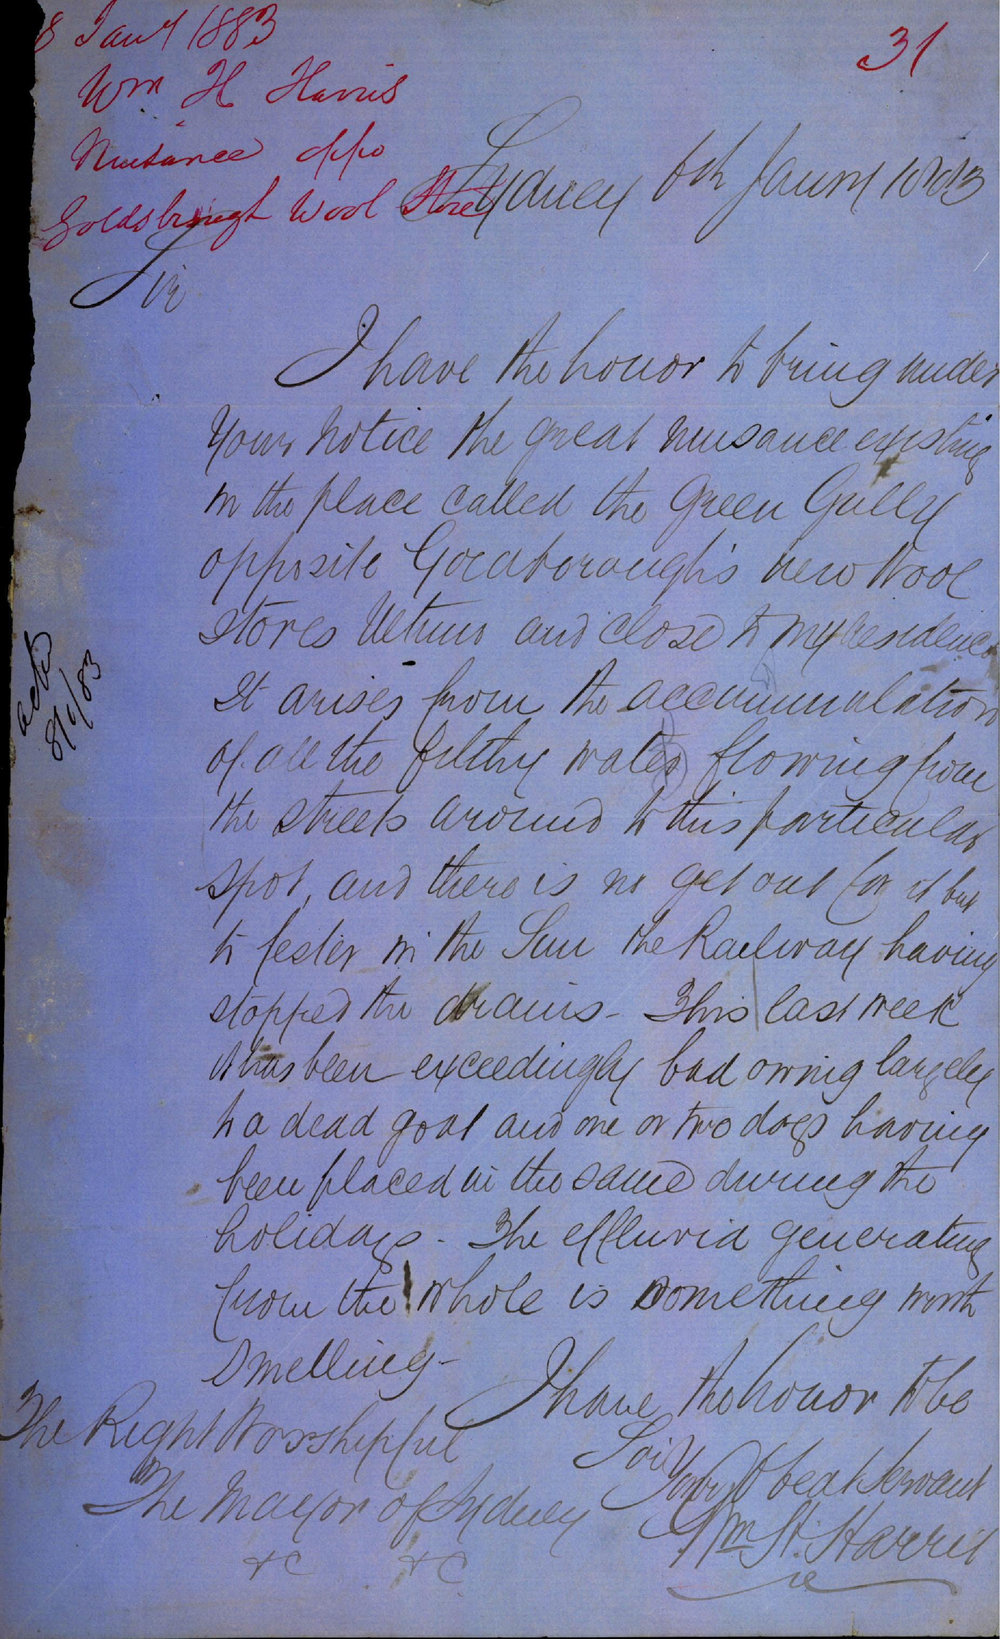 8 Jany 1883
31
Wm H Harris
Nuisance oppo
Goldsbrough Wool Stores
Sydney 6th Janry 1883
Sir
I have the honor to bring under
your notice the great nuisance existing
in the place called the Green Gully
opposite Goldborough's new Wool
Stores Ultimo and close to my residence
It arises from the accumulation
of all the filthy water flowing from
the streets around to this particular
spot, and there is no get out for it but
to fester in the Sun the Railway having
stopped the drains - This last week
it has been exceedingly bad owing largely
to a dead goat and one or two dogs having
been placed in the same during the
holidays - The effluvia generating
from the whole is something worth
smelling -
I have the honor to be
Sir
Your Obedt Servant
Wm H. Harris
The Right Worshipful
The Mayor of Sydney
&c &c
8/1/83